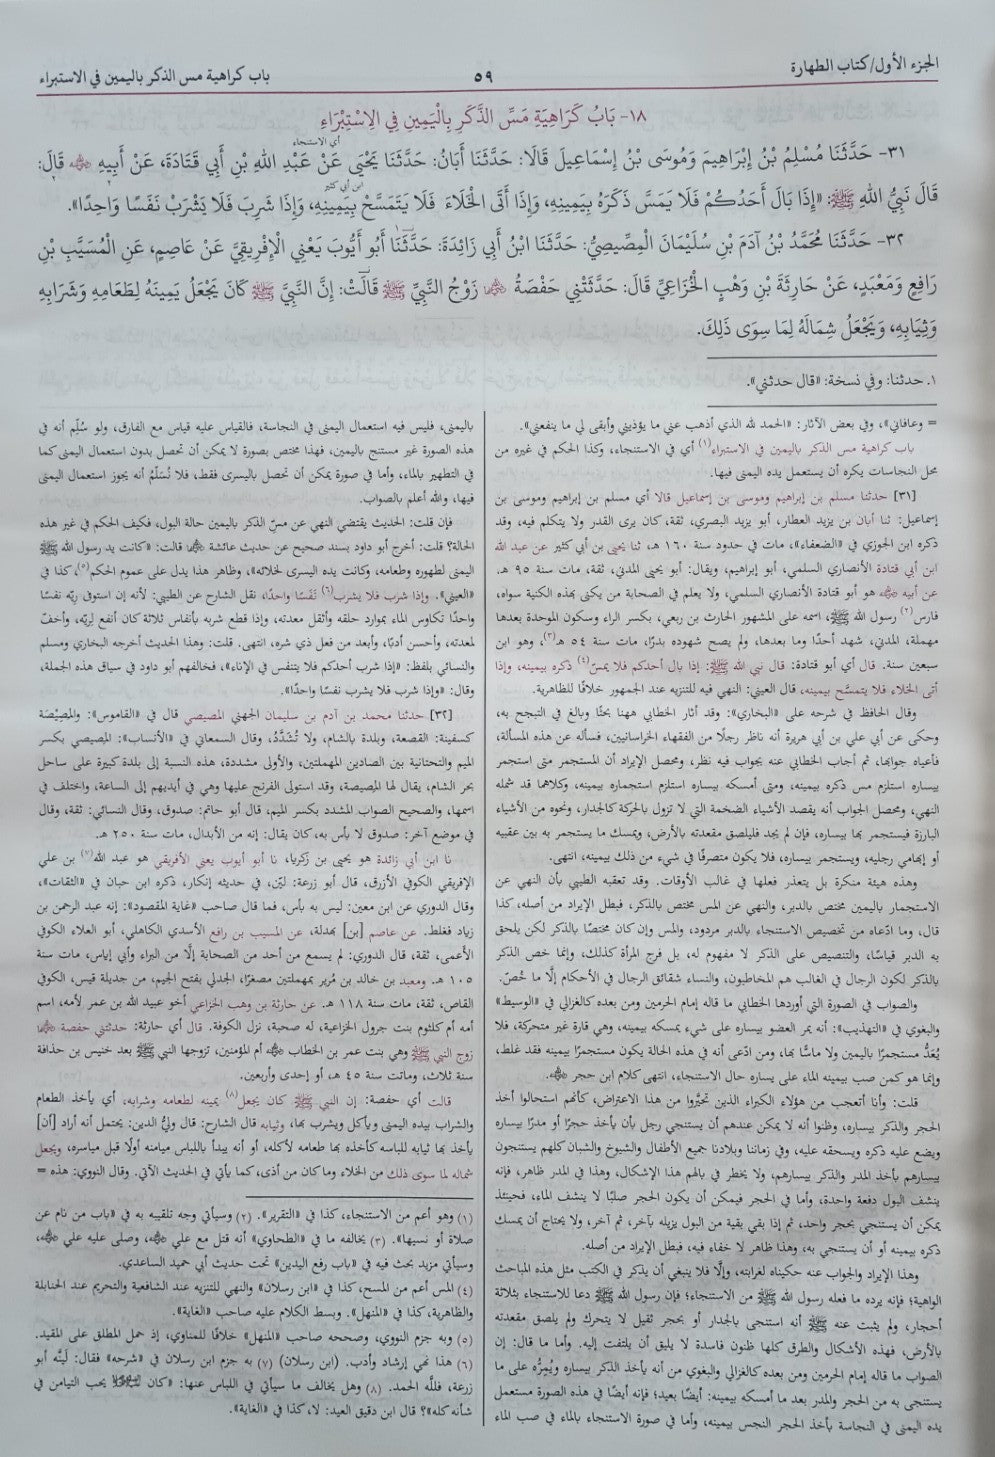 الجزء الأول/كتاب الطهارة
٥٩
باب كراهية مس الذكر باليمين في الاستبراء
١٨- بَابُ كَرَاهِيَةِ مَسِّ الذَّكَرِ بِالْيَمِينِ فِي الِاسْتِبْرَاءِ
أي الاستنجاء
٣١- حَدَّثَنَا مُسْلِمُ بْنُ إِبْرَاهِيمَ وَمُوسَى بْنُ إِسْمَاعِيلَ قَالَا: حَدَّثَنَا أَبَانُ: حَدَّثَنَا يَحْيَى عَنْ عَبْدِ اللهِ بْنِ أَبِي قَتَادَةَ، عَنْ أَبِيهِ ﷺ قَالَ:
ابن أبي كثير
قَالَ نَبِيُّ اللهِ ﷺ: «إِذَا بَالَ أَحَدُكُمْ فَلَا يَمَسَّ ذَكَرَهُ بِيَمِينِهِ، وَإِذَا أَتَى الْخَلَاءَ فَلَا يَتَمَسَّحْ بِيَمِينِهِ، وَإِذَا شَرِبَ فَلَا يَشْرَبْ نَفَسًا وَاحِدًا».
٣٢- حَدَّثَنَا مُحَمَّدُ بْنُ آدَمَ بْنِ سُلَيْمَانَ الْمِصِّيصِيُّ: حَدَّثَنَا ابْنُ أَبِي زَائِدَةَ: حَدَّثَنَا أَبُو أَيُّوبَ يَعْنِي الْإِفْرِيقِيَّ عَنْ عَاصِمٍ، عَنِ الْمُسَيَّبِ بْنِ
رَافِعٍ وَمَعْبَدٍ، عَنْ حَارِثَةَ بْنِ وَهْبٍ الْخُزَاعِيِّ قَالَ: حَدَّثَتْنِي حَفْصَةُ زَوْجُ النَّبِيِّ ﷺ قَالَتْ: إِنَّ النَّبِيَّ ﷺ كَانَ يَجْعَلُ يَمِينَهُ لِطَعَامِهِ وَشَرَابِهِ
وَثِيَابِهِ، وَيَجْعَلُ شِمَالَهُ لِمَا سِوَى ذَلِكَ.
١. حدثنا: وفي نسخة: «قال حدثني».
= وعافاني»، وفي بعض الآثار: «الحمد لله الذي أذهب عني ما يؤذيني وأبقى لي ما ينفعني».
باب كراهية مس الذكر باليمين في الاستبراء(١) أي في الاستنجاء، وكذا الحكم في غيره من
محل النجاسات يكره أن يستعمل يده اليمنى فيها.
[٣١] حدثنا مسلم بن إبراهيم وموسى بن إسماعيل قالا أي مسلم بن إبراهيم وموسى بن
إسماعيل: ثنا أبان بن يزيد العطار، أبو يزيد البصري، ثقة، كان يرى القدر ولا يتكلم فيه، وقد
ذكره ابن الجوزي في «الضعفاء»، مات في حدود سنة ١٦٠ هـ، ثنا يحيى بن أبي كثير عن عبد الله
ابن أبي قتادة الأنصاري السلمي، أبو إبراهيم، ويقال: أبو يحيى المدني، ثقة، مات سنة ٩٥ هـ،
عن أبيه هو أبو قتادة الأنصاري السلمي، ولا يعلم في الصحابة من يكنى بهذه الكنية سواه،
فارس(٢) رسول الله ﷺ، اسمه على المشهور الحارث بن ربعي، بكسر الراء وسكون الموحدة بعدها
مهملة، المدني، شهد أحدًا وما بعدها، ولم يصح شهوده بدرًا، مات سنة ٥٤ هـ(٣)، وهو ابن
سبعين سنة. قال أي أبو قتادة: قال نبي الله ﷺ: إذا بال أحدكم فلا يمسّ(٤) ذكره بيمينه، وإذا
أتى الخلاء فلا يتمسَّح بيمينه، قال العيني: النهي فيه للتنزيه عند الجمهور خلافًا للظاهرية.
وقال الحافظ في شرحه على «البخاري»: وقد أثار الخطابي ههنا بحثًا وبالغ في التبجح به،
وحكى عن أبي علي بن أبي هريرة أنه ناظر رجلًا من الفقهاء الخراسانيين، فسأله عن هذه المسألة،
فأعياه جوابها، ثم أجاب الخطابي عنه بجواب فيه نظر، ومحصل الإيراد أن المستجمر متى استجمر
بيساره استلزم مس ذكره بيمينه، ومتى أمسكه بيساره استلزم استجماره بيمينه، وكلاهما قد شمله
النهي، ومحصل الجواب أنه يقصد الأشياء الضخمة التي لا تزول بالحركة كالجدار، ونحوه من الأشياء
البارزة فيستجمر بها بيساره، فإن لم يجد فليلصق مقعدته بالأرض، ويمسك ما يستجمر به بين عقبيه
أو إبهامي رجليه، ويستجمر بيساره، فلا يكون متصرفًا في شيء من ذلك بيمينه، انتهى.
وهذه هيئة منكرة بل يتعذر فعلها في غالب الأوقات. وقد تعقبه الطيبي بأن النهي عن
الاستجمار باليمين مختص بالدبر، والنهي عن المس مختص بالذكر، فبطل الإيراد من أصله، كذا
قال، وما ادّعاه من تخصيص الاستنجاء بالدبر مردود، والمس وإن كان مختصًا بالذكر لكن يلحق
به الدبر قياسًا، والتنصيص على الذكر لا مفهوم له، بل فرج المرأة كذلك، وإنما خص الذكر
بالذكر لكون الرجال في الغالب هم المخاطبون، والنساء شقائق الرجال في الأحكام إلَّا ما خُصّ.
والصواب في الصورة التي أوردها الخطابي ما قاله إمام الحرمين ومن بعده كالغزالي في «الوسيط»
والبغوي في «التهذيب»: أنه يمر العضو بيساره على شيء يمسكه بيمينه، وهي قارة غير متحركة، فلا
يُعَدُّ مستجمرًا باليمين ولا ماسًّا بها، ومن ادّعى أنه في هذه الحالة يكون مستجمرًا بيمينه فقد غلط،
وإنما هو كمن صب بيمينه الماء على يساره حال الاستنجاء، انتهى كلام ابن حجر.
قلت: وأنا أتعجب من هؤلاء الكبراء الذين تحيَّروا من هذا الاعتراض، كأنهم استحالوا أخذ
الحجر والذكر بيساره، وظنوا أنه لا يمكن عندهم أن يستنجي رجل بأن يأخذ حجرًا أو مدرًا بيساره
ويضع عليه ذكره ويسحقه عليه، وفي زماننا وبلادنا جميع الأطفال والشيوخ والشبان كلهم يستنجون
بيسارهم بأخذ المدر والذكر بيسارهم، ولا يخطر في بالهم هذا الإشكال، وهذا في المدر ظاهر، فإنه
ينشف البول دفعة واحدة، وأما في الحجر فيمكن أن يكون الحجر صلبًا لا ينشف الماء، فحينئذ
يمكن أن يستنجي بحجر واحد، ثم إذا بقي بقية من البول يزيله بآخر، ثم آخر، ولا يحتاج أن يمسك
ذكره بيمينه أو أن يستنجي به، وهذا ظاهر لا خفاء فيه، فبطل الإيراد من أصله.
وهذا الإيراد والجواب عنه حكيناه لغرابته، وإلَّا فلا ينبغي أن يذكر في الكتب مثل هذه المباحث
الواهية؛ فإنه يرده ما فعله رسول الله ﷺ من الاستنجاء؛ فإن رسول الله ﷺ دعا للاستنجاء بثلاثة
أحجار، ولم يثبت عنه ﷺ أنه استنجى بالجدار أو بحجر ثقيل لا يتحرك ولم يلصق مقعدته
بالأرض، فهذه الأشكال والطرق كلها ظنون فاسدة لا يليق أن يلتفت إليه. وأما ما قال: إن
الصواب ما قاله إمام الحرمين ومن بعده كالغزالي والبغوي من أنه يأخذ الذكر بيساره ويُمِرُّه على ما
يستنجي به من الحجر والمدر بعد ما أمسكه بيمينه: أيضًا بعيد؛ فإنه أيضًا في هذه الصورة مستعمل
يده اليمنى في النجاسة بأخذ الحجر النجس بيمينه، وأما في صورة الاستنجاء بالماء في صب الماء
باليمنى، فليس فيه استعمال اليمنى في النجاسة، فالقياس عليه قياس مع الفارق، ولو سُلِّم أنه في
هذه الصورة غير مستنج باليمين، فهذا مختص بصورة لا يمكن أن تحصل بدون استعمال اليمنى كما
في التطهير بالماء، وأما في صورة يمكن أن تحصل باليسرى فقط، فلا نُسَلِّمُ أنه يجوز استعمال اليمنى
فيها، والله أعلم بالصواب.
فإن قلت: الحديث يقتضي النهي عن مسّ الذكر باليمين حالة البول، فكيف الحكم في غير هذه
الحالة؟ قلت: أخرج أبو داود بسند صحيح عن حديث عائشة قالت: «كانت يد رسول الله ﷺ
اليمنى لطهوره وطعامه، وكانت يده اليسرى لخلائه»، وظاهر هذا يدل على عموم الحكم(٥)، كذا في
«العيني». وإذا شرب فلا يشرب(٦) نَفَسًا واحدًا، نقل الشارح عن الطيبي: لأنه إن استوفى رِيّه نفسًا
واحدًا تكاوس الماء بموارد حلقه وأثقل معدته، وإذا قطع شربه بأنفاس ثلاثة كان أنفع لِرِيّه، وأخفّ
لمعدته، وأحسن أدبًا، وأبعد من فعل ذي شره، انتهى. قلت: وهذا الحديث أخرجه البخاري ومسلم
والنسائي بلفظ: «إذا شرب أحدكم فلا يتنفس في الإناء»، فخالفهم أبو داود في سياق هذه الجملة،
وقال: «وإذا شرب فلا يشرب نفسًا واحدًا».
[٣٢] حدثنا محمد بن آدم بن سليمان الجهني المصيصي قال في «القاموس»: والمصِيْصَة
كسفينة: القصعة، وبلدة بالشام، ولا تُشَدَّدُ، وقال السمعاني في «الأنساب»: المصيصي بكسر
الميم والتحتانية بين الصادين المهملتين، والأولى مشددة، هذه النسبة إلى بلدة كبيرة على ساحل
بحر الشام، يقال لها المصيصة، وقد استولى الفرنج عليها وهي في أيديهم إلى الساعة، واختلف في
اسمها، والصحيح الصواب المشدد بكسر الميم، قال أبو حاتم: صدوق، وقال النسائي: ثقة، وقال
في موضع آخر: صدوق لا بأس به، كان يقال: إنه من الأبدال، مات سنة ٢٥٠ هـ.
نا ابن أبي زائدة هو يحيى بن زكريا، نا أبو أيوب يعني الأفريقي هو عبد الله(٧) بن علي
الإفريقي الكوفي الأزرق، قال أبو زرعة: ليّن، في حديثه إنكار، ذكره ابن حبان في «الثقات»،
وقال الدوري عن ابن معين: ليس به بأس، فما قال صاحب «غاية المقصود»: إنه عبد الرحمن بن
زياد فغلط. عن عاصم [بن] بهدلة، عن المسيب بن رافع الأسدي الكاهلي، أبو العلاء الكوفي
الأعمى، ثقة، قال الدوري: لم يسمع من أحد من الصحابة إلَّا من البراء وأبي إياس، مات سنة
١٠٥ هـ. ومعبد بن خالد بن مُرير بمهملتين مصغرًا، الجدلي بفتح الجيم، من جديلة قيس، الكوفي
القاص، ثقة، مات سنة ١١٨ هـ. عن حارثة بن وهب الخزاعي أخو عبيد الله بن عمر لأمه، اسم
أمه أم كلثوم بنت جرول الخزاعية، له صحبة، نزل الكوفة. قال أي حارثة: حدثتني حفصة
زوج النبي ﷺ وهي بنت عمر بن الخطاب أم المؤمنين، تزوجها النبي ﷺ بعد خنيس بن حذافة
سنة ثلاث، وماتت سنة ٤٥ هـ، أو إحدى وأربعين.
قالت أي حفصة: إن النبي ﷺ كان يجعل(٨) يمينه لطعامه وشرابه، أي يأخذ الطعام
والشراب بيده اليمنى ويأكل ويشرب بها، وثيابه قال الشارح: قال وليُّ الدين: يحتمل أنه أراد [أن]
يأخذ بها ثيابه للباسه كأخذه بها طعامه لأكله، أو أنه يبدأ باللباس ميامنه أولًا قبل مياسره، ويجعل
شماله لما سوى ذلك من الخلاء وما كان من أذى، كما يأتي في الحديث الآتي. وقال النووي: هذه =
(١) وهو أعم من الاستنجاء، كذا في «التقرير». (٢) وسيأتي وجه تلقيبه به في «باب من نام عن
صلاة أو نسيها». (٣) يخالفه ما في «الطحاوي» أنه قتل مع علي، وصلى عليه علي،
وسيأتي مزيد بحث فيه في «باب رفع اليدين» تحت حديث أبي حميد الساعدي.
(٤) المس أعم من المسح، كذا في «ابن رسلان» والنهي للتنزيه عند الشافعية والتحريم عند الحنابلة
والظاهرية، كذا في «المنهل». وبسط الكلام عليه صاحب «الغاية».
(٥) وبه جزم النووي، وصححه صاحب «المنهل» خلافًا للمناوي، إذ حمل المطلق على المقيد.
(٦) هذا نهي إرشاد وأدب. (ابن رسلان) (٧) به جزم ابن رسلان في «شرحه» فقال: ليَّنه أبو
زرعة، فللَّه الحمد. (٨) وهل يخالف ما سيأتي في اللباس عنها: «كان يحب التيامن في
شأنه كله»؟ قال ابن دقيق العيد: لا، كذا في «الغاية».